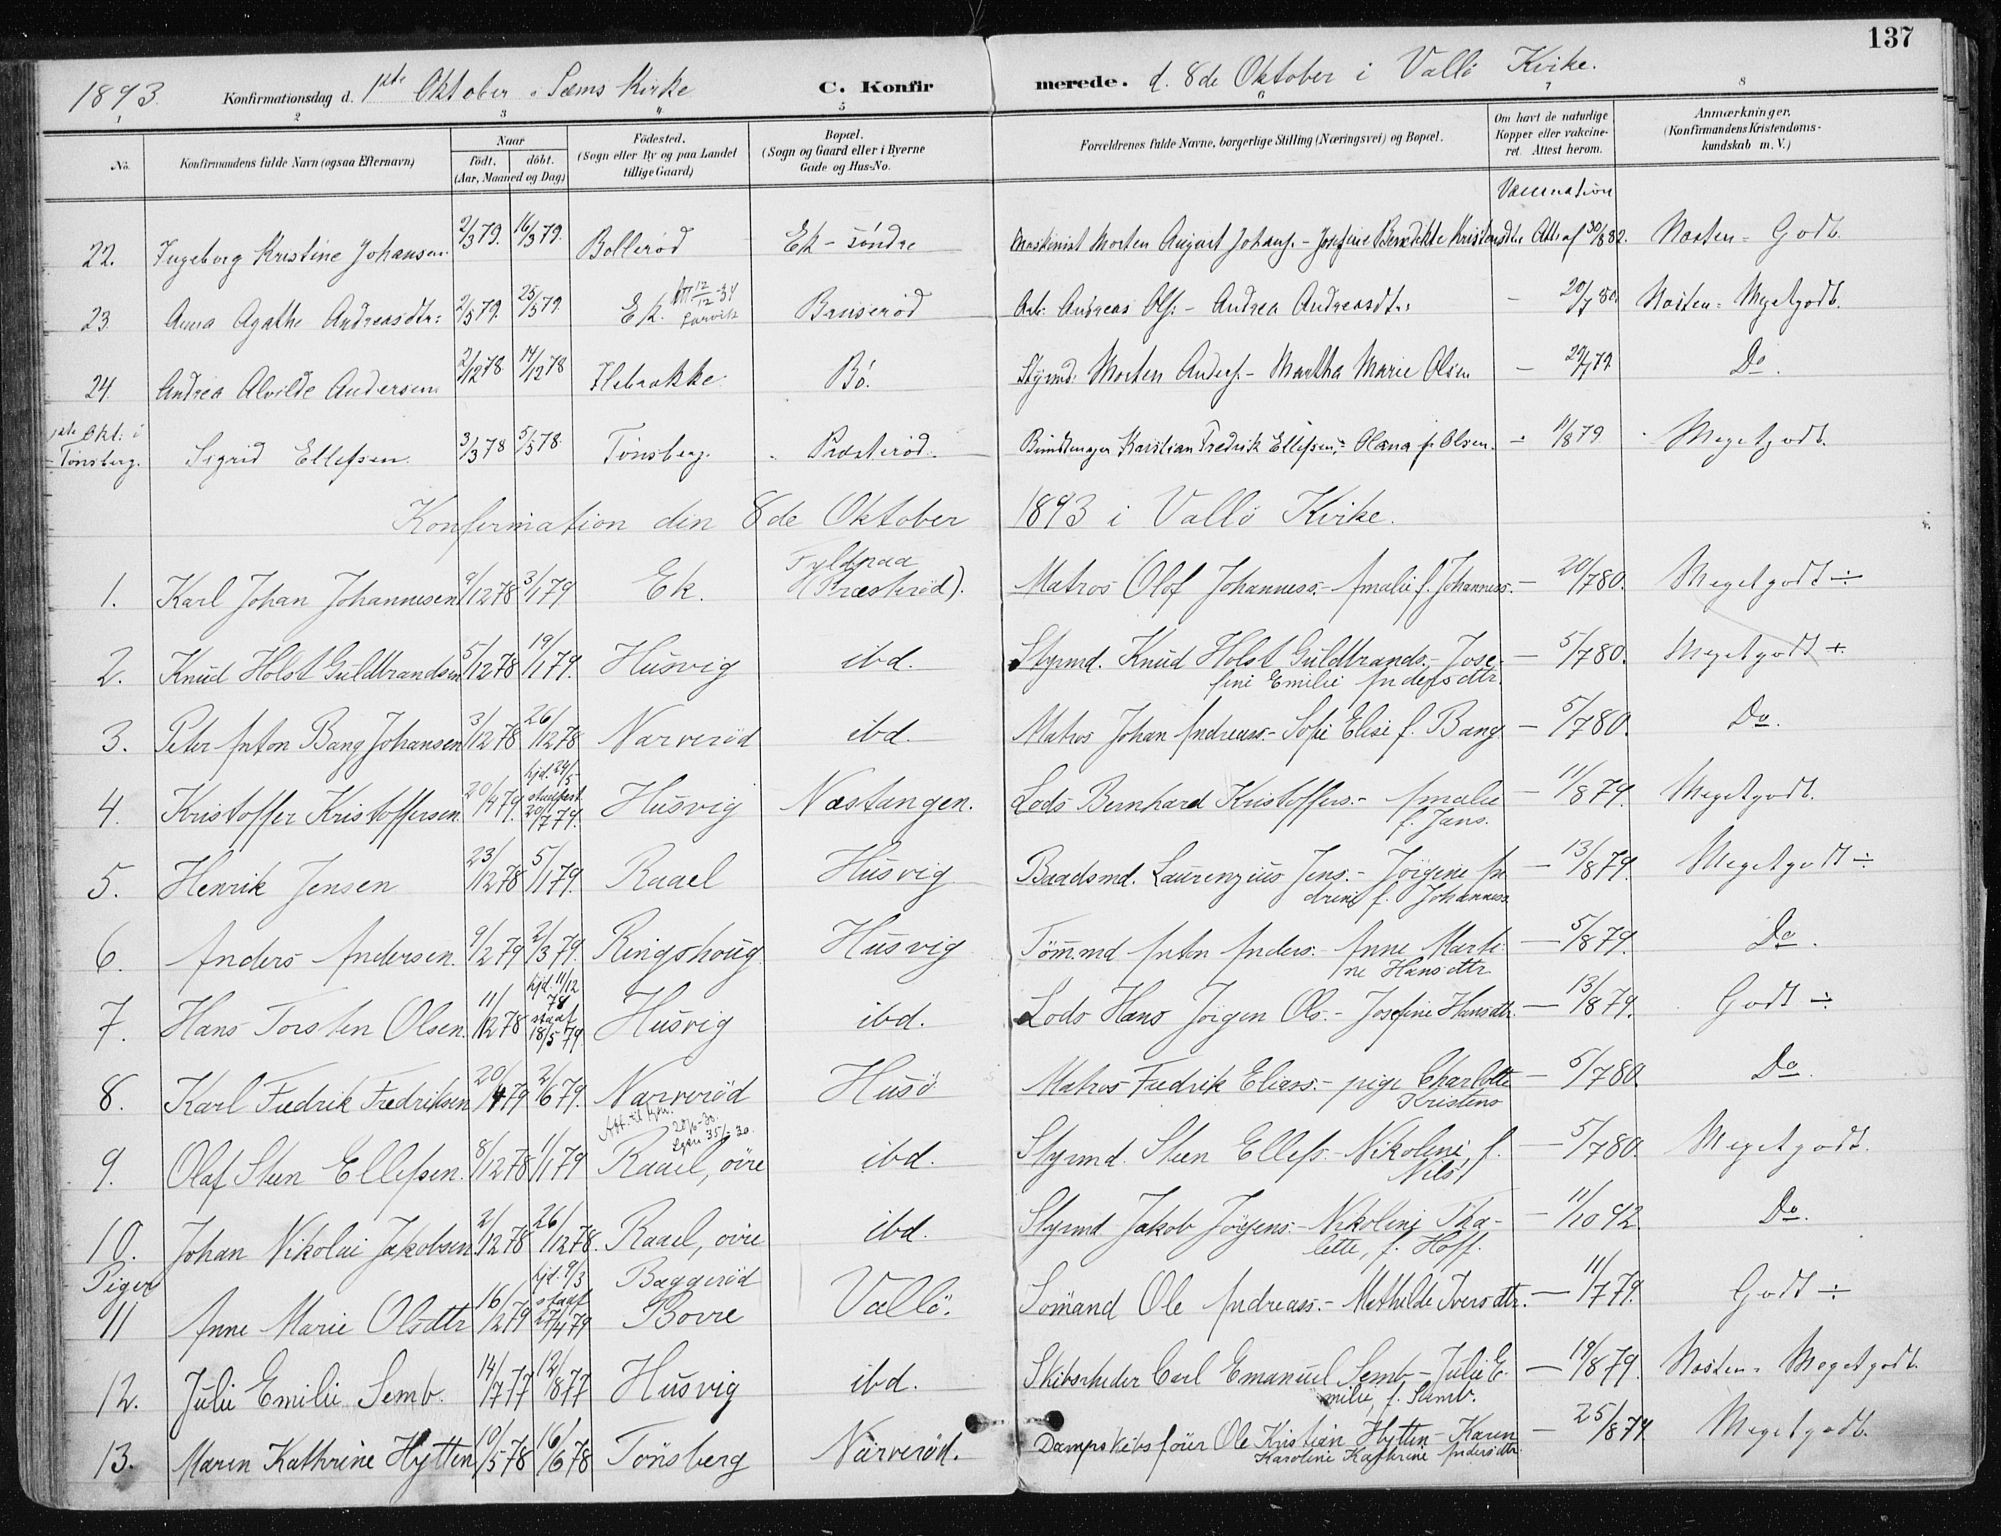 137
1893. Konfirmationsdag d. 1ste Oktober i Sems Kirke C. Konfirmerede. d. 8de Oktober i Vallö Kirke.
1 2 3 4 5 6 7 8
No. Konfirmandens fulde Navn (ogsaa Efternavn) Naar født. døbt. (Aar, Maaned og Dag) Fødested. (Sogn eller By og paa Landet tillige Gaard) Bopæl. (Sogn og Gaard eller i Byerne Gade og Hus-No. Forældrenes fulde Navne, borgerlige Stilling (Næringsvei) og Bopæl. Om havt de naturlige Kopper eller vakcineret. Attest herom. Anmærkninger. (Konfirmandens Kristendomskundskab m. V.)
Vaccination
22. Ingeborg Kristine Johansen 2/3 79. 16/3 79. Bollerød Ek - söndre Maskinist Morten August Johans. - Josefine Benedikte Kristensdtr. Att. af 30/8 82. Næsten - Godt
23 Anna Agathe Andreasdtr: 2/5 79. 25/5 79. Ek. 12/12 34 Larvik Bruserød Arb. Andreas Ols. - Andrea Andreasdtr: - 20/7 80. Næsten - Megetgodt.
24. Andrea Alvilde Andersen 2/12 78. 14/12 78 Ilebrekke Bö. Styrmd: Morten Anders. - Martha Marie Olsen - 29/7 79 Do.
1ste Okt. i Tönsberg. Sigrid Ellefsen 3/3 78 5/5 78. Tönsberg. Præsterød. Kristian Fredrik Ellefsen, - Olana f. Olsen. - 11/8 79. Megetgodt.
Konfirmation den 8de Oktober 1893 i Vallö Kirke.
1. Karl Johan Johannesen 9/12 78 3/1 79 Ek. Fyldpaa (Præsterød). Matros Olof Johanness. - Amalie f. Johanness. - 20/7 80. Megetgodt ÷
2. Knud Holst Guldbrandsen 5/12 78 19/1 79. Husvig ibd. Styrmd. Knud Holst Guldbrands. - Josefine Emilie Andersdtr. - 5/7 80. Megetgodt +.
3. Peter Anton Bang Johansen 3/12 78 26/12 78 Narverød ibd. Matros Johan Andreass. - Sofie Elise f. Bang - 5/7 80. Do.
4. Kristoffer Kristoffersen. 20/4 79. hjd. 24/5 stadfest 20/7 79. Husvig Næstangen. Lods Bernhard Kristoffers. - Amalie f. Jans. - 11/8 79. Megetgodt.
5. Henrik Jensen 23/12 78 5/1 79. Raael Husvig Baadsmd. Laurenzius Jens. - Jörgine Andrine f. Johanness. - 13/8 79. Megetgodt ÷
6. Anders Andersen. 9/2 79 2/3 79. Ringshoug Husvig Tömmd Anton Anders. - Anne Martine Hansdtr. - 5/8 79. Do.
7. Hans Torsten Olsen. 11/12 78 hjd. 11/12 78 staf 18/5 79. Husvig ibd. Lods Hans Jörgen Ols. - Josefine Hansdtr. - 13/8 79. Godt ÷
8. Karl Fredrik Fredriksen 20/4 79 2/6 79. Narverød Husö Matros Fredrik Eliass. - pige Charlotte Kristens - 5/7 80. Do.
9. Olaf Steen Ellefsen. 8/12 78 1/1 79 Att. til 20/6-30. Raael, övre ibd. Styrmd. Steen Ellefs. - Nikoline, f. Nils. - 5/7 80. Megetgodt.
10. Johan Nikolai Jakobsen 2/12 78 26/12 78. Raael, övre ibd. Styrmd Jakob Jörgens. - Nikoline Thalette, f. Hoff. - 11/10 92. Do.
Piger
11 Anne Marie Olsdtr 16/2 79 hjd. 9/3 staf 27/4 79 Baggerød Bovre Vallö. Sömand Ole Andreass. - Mathilde Iversdtr. - 11/7 79. Godt ÷
12. Julie Emilie Semb. 14/7 77 12/8 77 Husvig ibd. Skibsrheder Carl Emanuel Semb - Julie Emilie, f. Semb. - 19/8 79. Næsten - Megetgodt.
13. Maren Kathrine Hytten 10/5 78 16/6 78 Tönsberg Narverød. Dampskibsförer Ole Kristian Hytten - Karen Karoline Kathrine Andersdtr. - 25/8 79. Megetgodt.